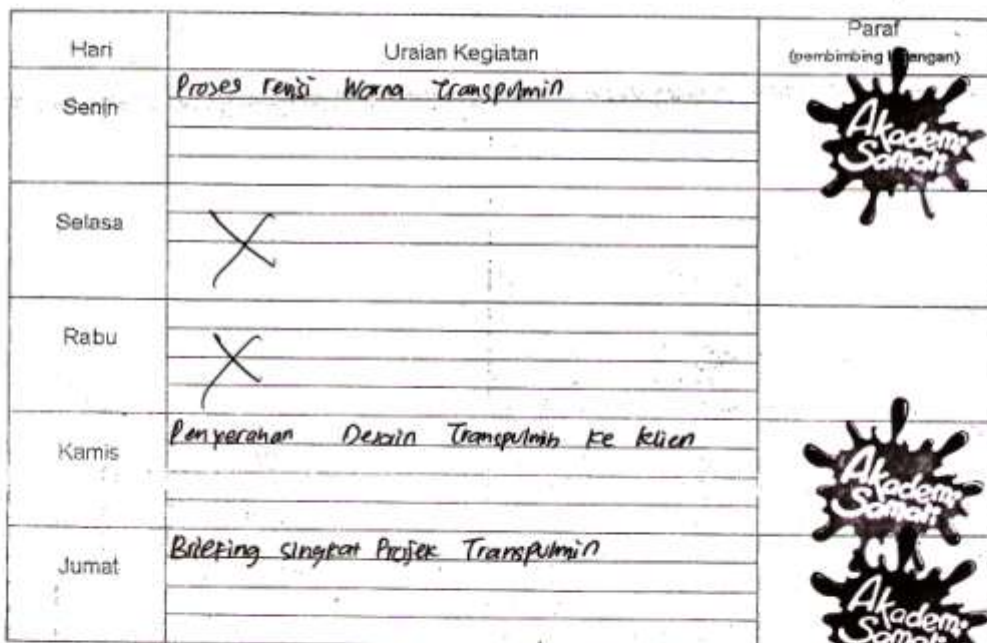 Hari Uraian Kegiatan Paraf
(pembimbing lapangan)
Senin Proses revisi Warna Transpulmin
Akademi
Samali
Selasa X
Rabu X
Kamis Penyerahan Desain Transpulmin ke klien
Akademi
Samali
Jumat Briefing singkat Projek Transpulmin
Akademi
Samali